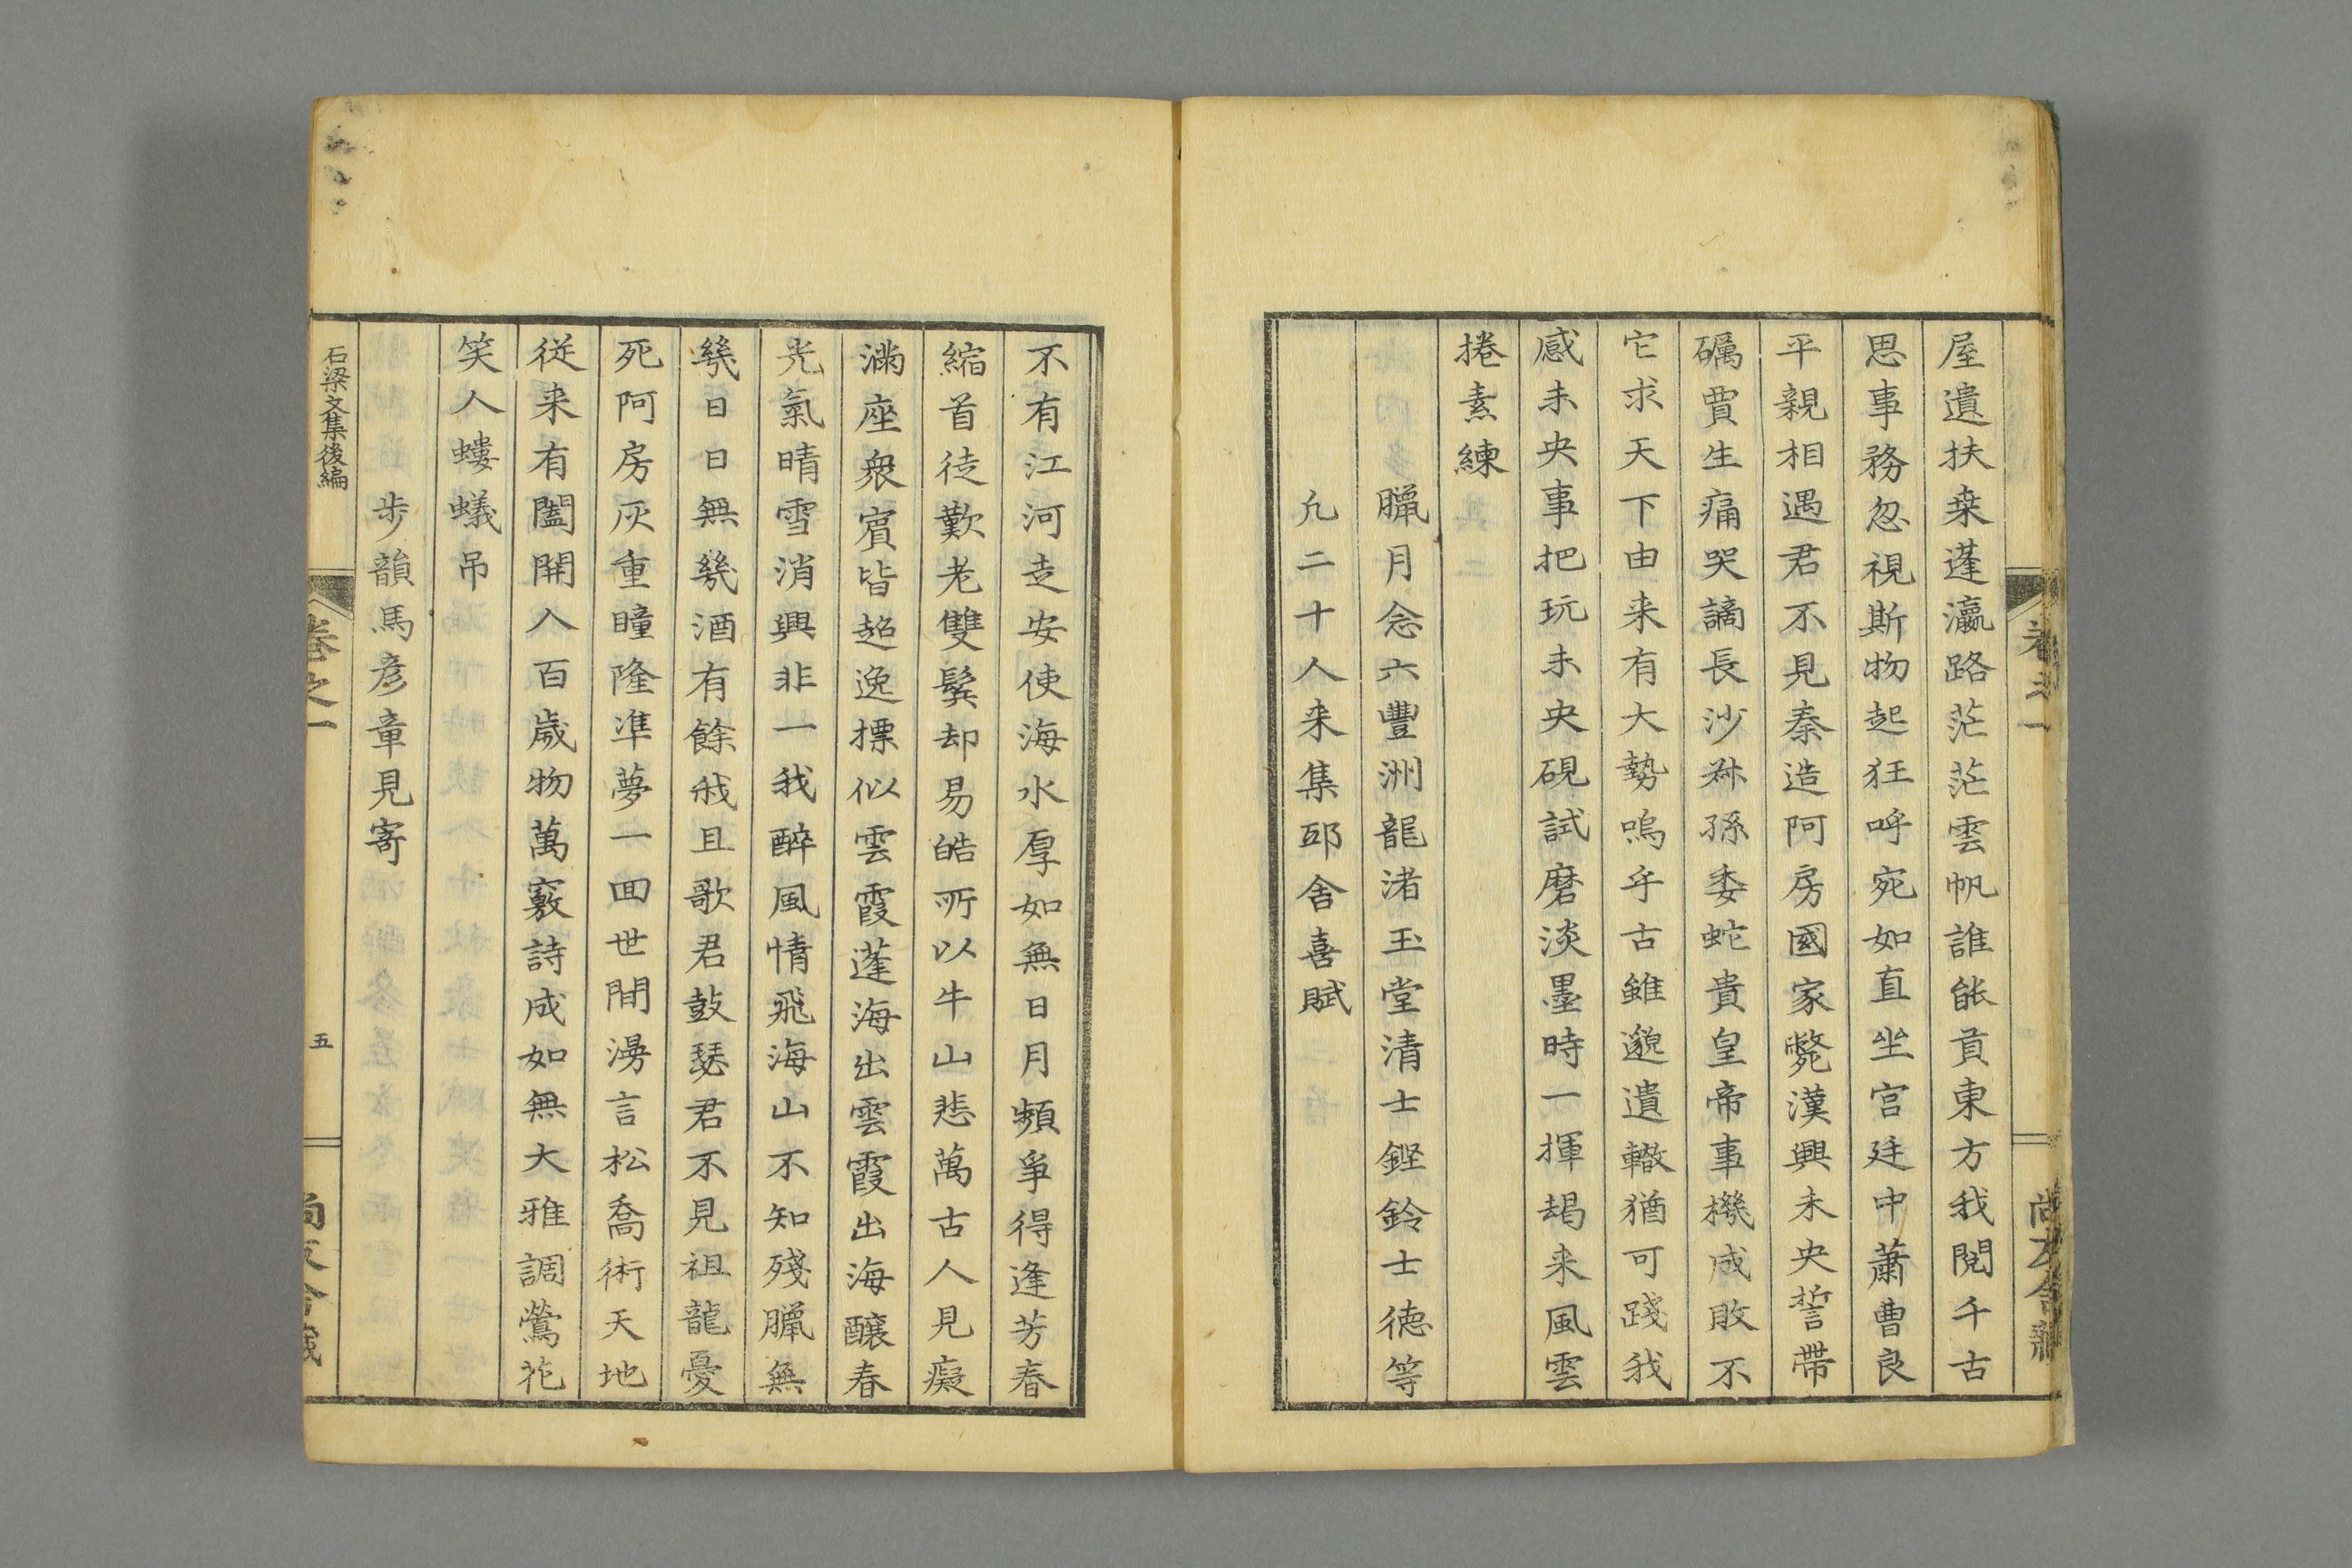 屋遺扶桒蓬瀛路茫茫雲帆誰能貢東方我閱千古
思事務忽視斯物起狂呼宛如直坐宮廷中蕭曹良
平親相遇君不見秦造阿房國家斃漢興未央誓帶
礪賈生痛哭謫長沙叔孫委蛇貴皇帝事機成敗不
它求天下由来有大勢嗚乎古雖邈遺轍猶可踐我
感未央事把玩未央硯試磨淡墨時一揮朅来風雲
捲素練
臘月念六豐洲龍渚玉堂清士鏗鈴士徳等
凢二十人来集邸舍喜賦
卷之一
不有江河走安使海水厚如無日月頻爭得逢芳春
縮首徒歎老雙鬢却易皓所以牛山悲萬古人見癡
滿座衆賓皆超逸摽似雲霞蓬海出雲霞出海釀春
光氣晴雪消興非一我醉風情飛海山不知殘臘無
幾日日無幾酒有餘我且歌君鼓瑟君不見祖龍憂
死阿房灰重瞳隆準夢一回世間漫言松喬術天地
從来有闔開人百歲物萬竅詩成如無大雅調鶯花
笑人螻蟻吊
步韻馬彦章見寄
石梁文集後編
卷之一
五